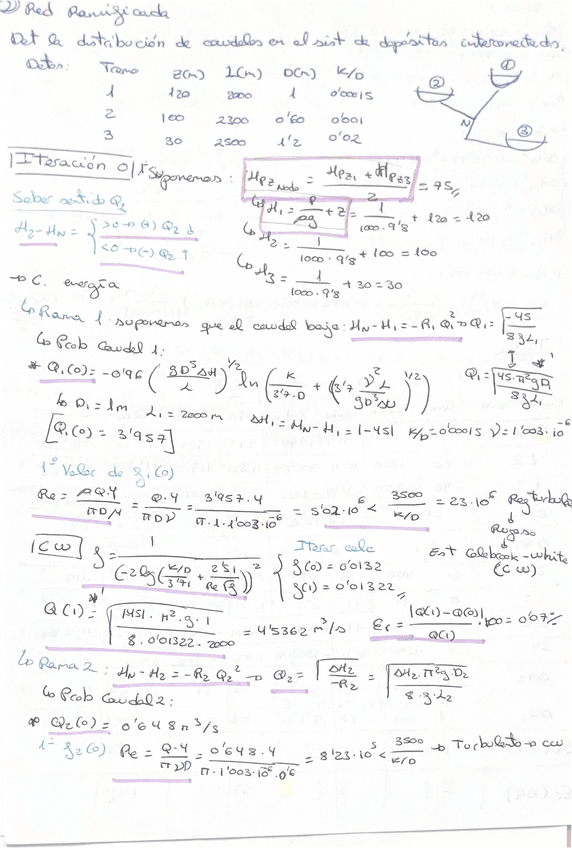 2) Red Ramificada
Det la distribución de caudales en el sist de depósitos interconectados.
Datos: Tramo Z(m) L(m) D(m) K/D
1 120 2000 1 0'00015
2 100 2300 0'60 0'001
3 30 2500 1'2 0'02
① ② ③ N
Iteración 0 1º Suponemos: H_PZ Nodo = (H_PZ1 + H_PZ3)/2 = 75
Saber sentido Q₂
H₂-H_N = { >0 → (+) Q₂ ↓
<0 → (-) Q₂ ↑
↳ H₁ = P/ρg + Z = 1/(1000·9'8) + 120 = 120
↳ H₂ = 1/(1000·9'8) + 100 = 100
↳ H₃ = 1/(1000·9'8) + 30 = 30
→ C. energía
↳ Rama 1: suponemos que el caudal baja: H_N - H₁ = -R₁ Q₁² → Q₁ = √(-45/8fL₁)
↳ Prob Caudal 1:
* Q₁(0) = -0'96 (gD⁵ΔH/L)^1/2 ln(K/3'7·D + (3'7 ν²L/gD³ΔH)^1/2)
Q₁ = √(45·π²gD/8fL₁)
↳ D₁ = 1m L₁ = 2000m ΔH₁ = H_N - H₁ = |-45| K/D = 0'00015 ν = 1'003·10⁻⁶
[Q₁(0) = 3'957]
1º Valor de f₁(0)
Re = ρQ·4/πDμ = Q·4/πDν = 3'957·4/π·1·1'003·10⁻⁶ = 5'02·10⁶ < 3500/(K/D) = 23·10⁶ Reg turbule
↓
Rugoso
↓
Est Colebook-white
(CW)
CW f = 1/(-2log(K/D/3'71 + 2'51/Re√f))² { Iterar calc
f(0) = 0'0132
f(1) = 0'01322
Q(1) = √(|45|·π²·g·1/8·0'01322·2000) = 4'5362 m³/s Er = |Q(1)-Q(0)|/Q(1) ·100 = 0'07%
↳ Rama 2: H_N - H₂ = -R₂ Q₂² → Q₂ = √(ΔH₂/-R₂) = √(ΔH₂·π²g·D₂/8·f·L₂)
↳ Prob Caudal 2:
* Q₂(0) = 0'648 m³/s
1º f₂(0) Re = Q·4/πνD = 0'648·4/π·1'003·10⁻⁶·0'6 = 8'23·10⁵ < 3500/(K/D) → Turbulento → CW